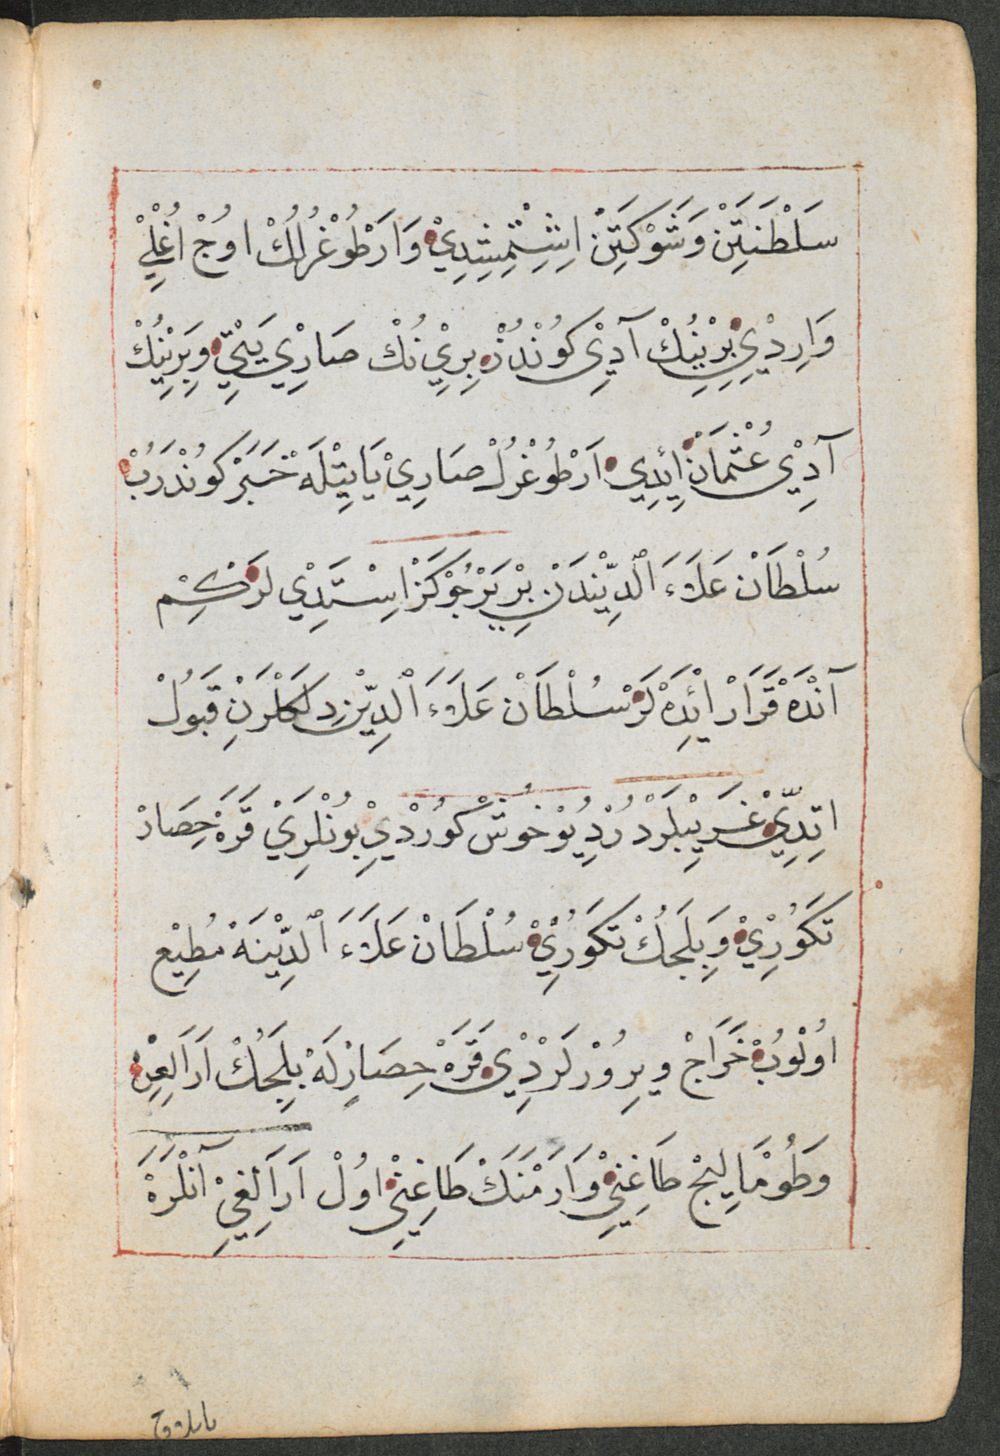 سَلْطَنَتِنْ وَشَوْكَتِنْ اِشِتْمِشِدِيْ وَارْطُوْغْرُلُكْ اوُجْ اُغْلِيْ
وَارِدْيِ بِرْيِنُكْ آدِيْ كوُنْدُزْ بِرِيْ نُكْ صَارِيْ يَتِيْ وبِرَيْنُكْ
آدِيْ عُثْمَانْ اِيْدِي اَرْطُوغْرُلْ صَارِيْ يَاتِيْلَهْ خَبَرْ كوُنْدَرُبْ
سُلْطَانْ عَلَاءَ الْدِّيْنْدَنْ بِرْ يَرْجُوْكَزْ اِسْتَدِيْ لَرْ كِمْ
آنْدَهْ قَرَارْ اِيْدَهْ لَرْ سُلْطَانْ عَلَاءَ الْدِّيْنْ دِلَكْلَرِنْ قَبُولْ
اِتِدّيْ غَرِيبْلَرْدُرْ دِيُوْ خُوشْ كوُرْدِيْ بُونْلَرِيْ قَرَهْ حِصَارْ
تَكوُرِيْ وَبِلَجُكْ تَكوُرِيْ سُلْطَانْ عَلَاءَ الْدِّيْنَهْ مُطِيْع
اوُلوُبْ خَرَاجْ ويِرُوْرْلَرْدْيِ قَرَهْ حِصَارْلَهْ بِلَجُكْ اَرَالِغِنْ
وَطُوْمَالِيجْ طَاغِنِيْ وَارْمَنَكْ طَاغِنِيْ اوُلْ اَرَالِغِيْ آنْلَرَهْ